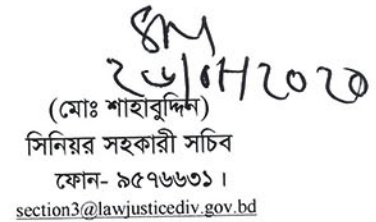 (মোঃ শাহাবুদ্দিন)
সিনিয়র সহকারী সচিব
ফোন- ৯৫৭৬৬৩১।
section3@lawjusticediv.gov.bd